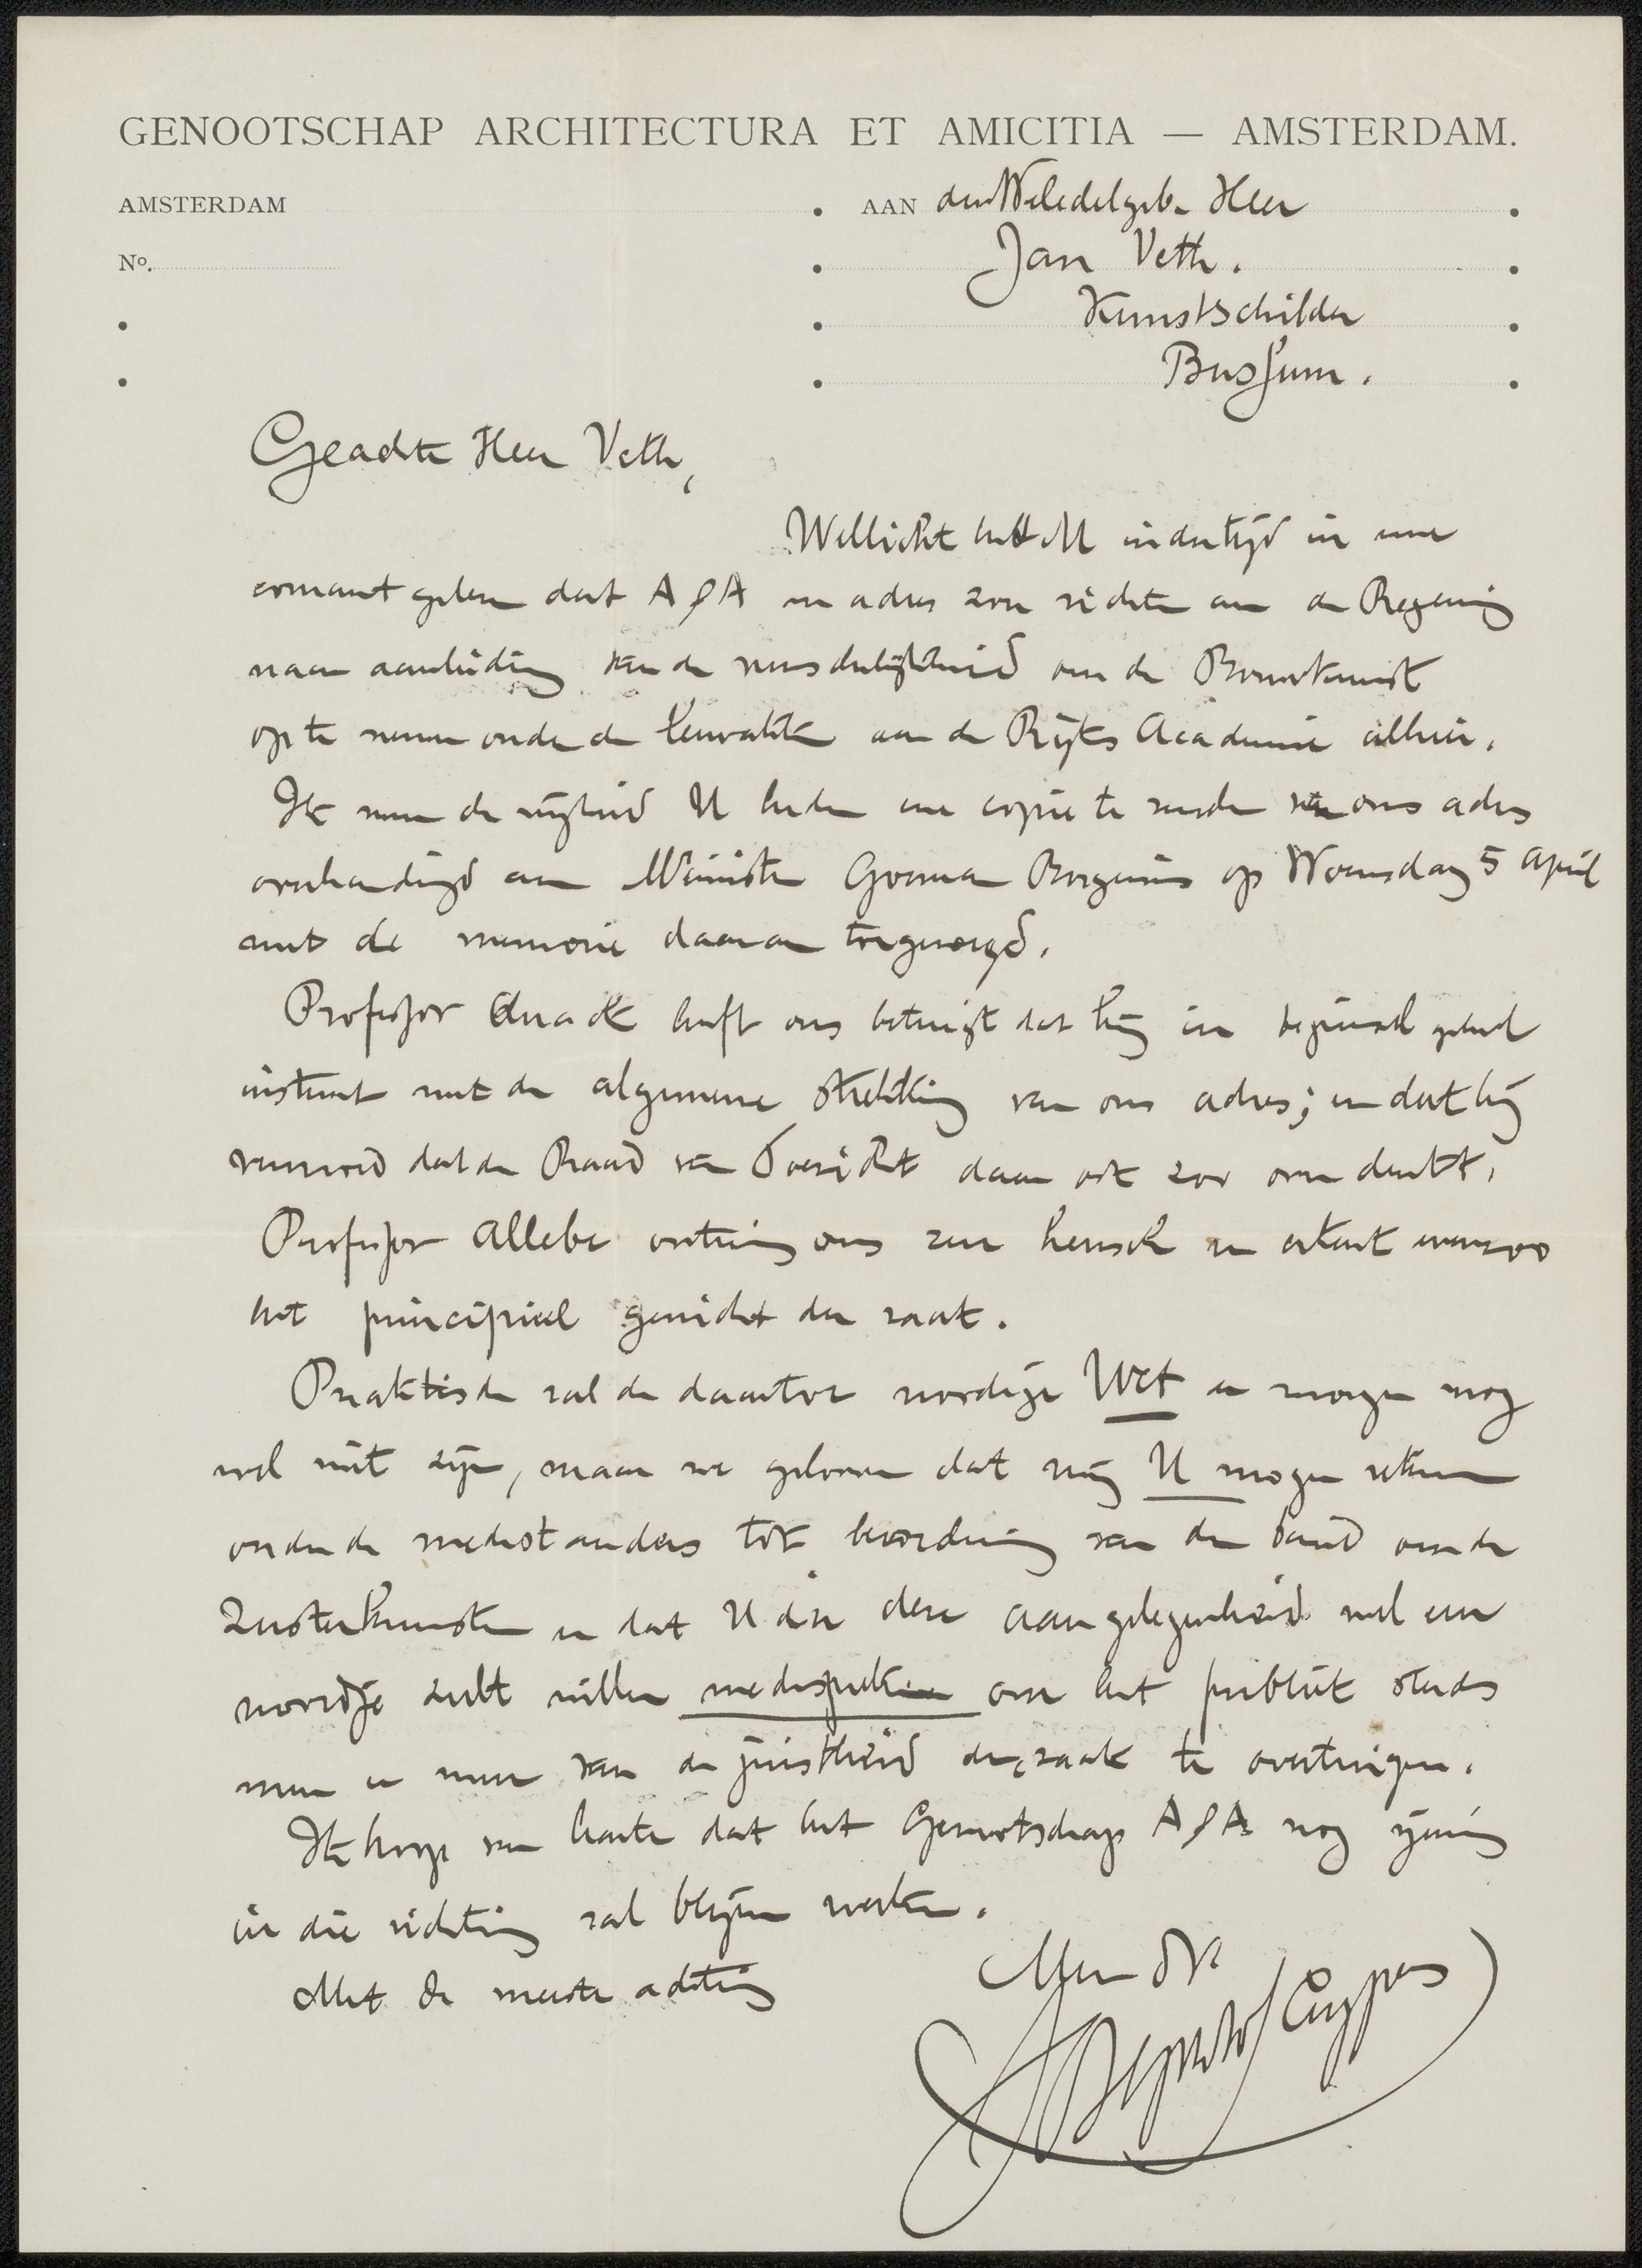 GENOOTSCHAP ARCHITECTURA ET AMICITIA — AMSTERDAM.
AMSTERDAM
AAN den Weledelgeb. Heer
No.
Jan Veth.
Kunstschilder
Bussum.
Geachte Heer Veth,
Wellicht hebt U indertijd in eene
courant gelezen dat A & A een adres zou richten aan de Regeering
naar aanleiding van de wenschelijkheid om de Bouwkunst
op te nemen onder de leervakken aan de Rijks Academie alhier.
Ik neem de vrijheid U heden een copie te zenden van ons adres
overhandigd aan Minister Goeman Borgesius op Woensdag 5 April
met de memorie daaraan toegevoegd.
Professor Quack heeft ons betuigd dat hij in beginsel geheel
instemt met de algemeene strekking van ons adres; en dat hij
vermoed dat de Raad van Toezicht daar ook zoo over denkt.
Professor Allebé ontving ons zeer heusch en erkent evenzoo
het principieel gewicht der zaak.
Praktisch zal de daartoe noodige Wet er morgen nog
wel niet zijn, maar we gelooven dat wij U mogen rekenen
onder de medestanders tot bevordering van den band over de
Zusterkunsten en dat U in deze aangelegenheid wel een
woordje zult willen medespreken om het publiek steeds
meer en meer van de juistheid der zaak te overtuigen.
Ik hoop van harte dat het Genootschap A & A nog ijverig
in die richting zal blijven werken.
Met de meeste achting
Uwen Dr
Cuypers